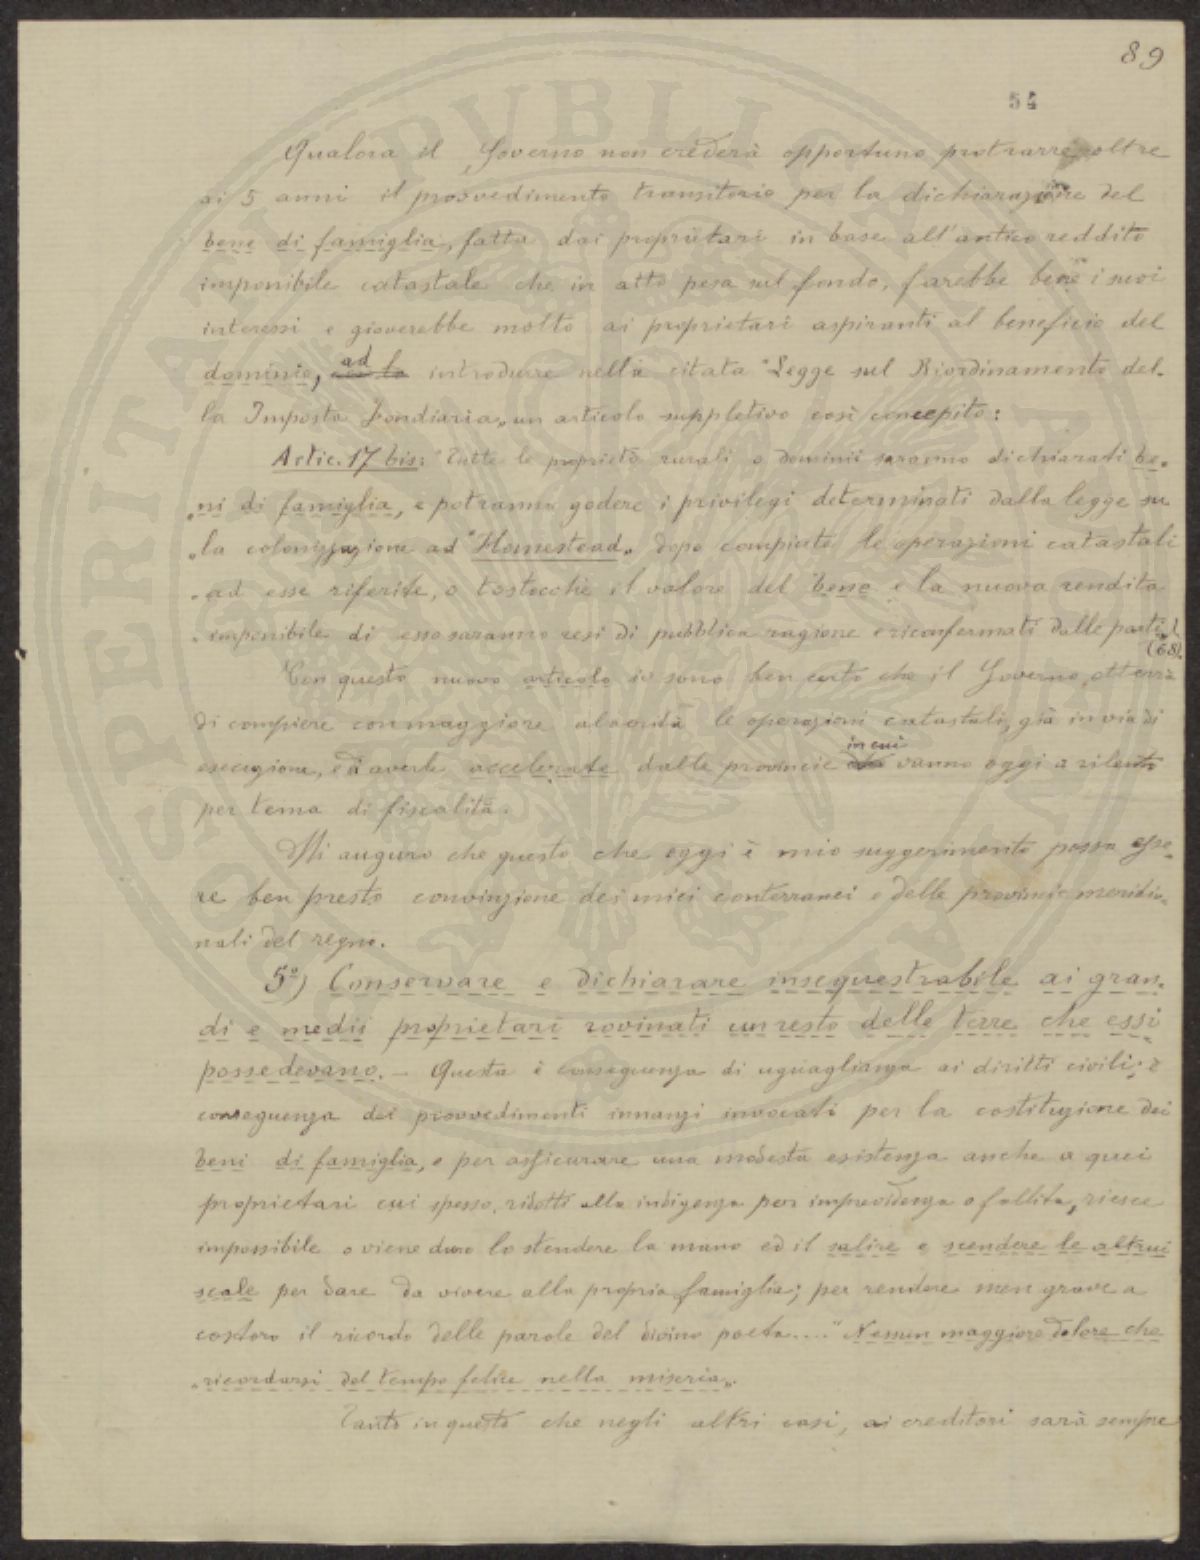 89
54
Qualora il Governo non crederà opportuno protrarre oltre
ai 5 anni il provvedimento transitorio per la dichiarazione del
bene di famiglia, fatta dai proprietari in base all'antico reddito
imponibile catastale che in atto pesa sul fondo, farebbe bene i suoi
interessi e gioverebbe molto ai proprietari aspiranti al beneficio del
dominio, ad introdurre nella citata "Legge sul Riordinamento del-
la Imposta Fondiaria" un articolo suppletivo così concepito:
Artic. 17 bis: "Tutte le proprietà rurali o dominii saranno dichiarati be-
"ni di famiglia, e potranno godere i privilegi determinati dalla legge su
"la colonizzazione ad "Homestead" dopo compiute le operazioni catastali
"ad esse riferite, o tostochè il valore del bene e la nuova rendita
"imponibile di esso saranno resi di pubblica ragione e riconfermati dalle parti"
(68).
Con questo nuovo articolo io sono ben certo che il Governo otterrà
di compiere con maggiore alacrità le operazioni catastali, già in via di
esecuzione, ed averle accelerate dalle provincie in cui vanno oggi a rilento
per tema di fiscalità.
Mi auguro che questo che oggi è mio suggerimento possa esse-
re ben presto convinzione dei miei conterranei e delle provincie meridio-
nali del regno.
5º) Conservare e dichiarare insequestrabile ai gran-
di e medii proprietari rovinati un resto delle terre che essi
possedevano. – Questa è conseguenza di uguaglianza ai diritti civili; è
conseguenza dei provvedimenti innanzi invocati per la costituzione dei
beni di famiglia, e per assicurare una modesta esistenza anche a quei
proprietari cui spesso, ridotti alla indigenza per imprevidenza o fallita, riesce
impossibile o viene duro lo stendere la mano ed il salire e scendere le altrui
scale per dare da vivere alla propria famiglia; per rendere men grave a
costoro il ricordo delle parole del divino poeta...." Nessun maggiore dolore che
"ricordarsi del tempo felice nella miseria".
Tanto in questo che negli altri casi, ai creditori sarà sempre
SOSPERITATI PVBLICAE AVGENDAE